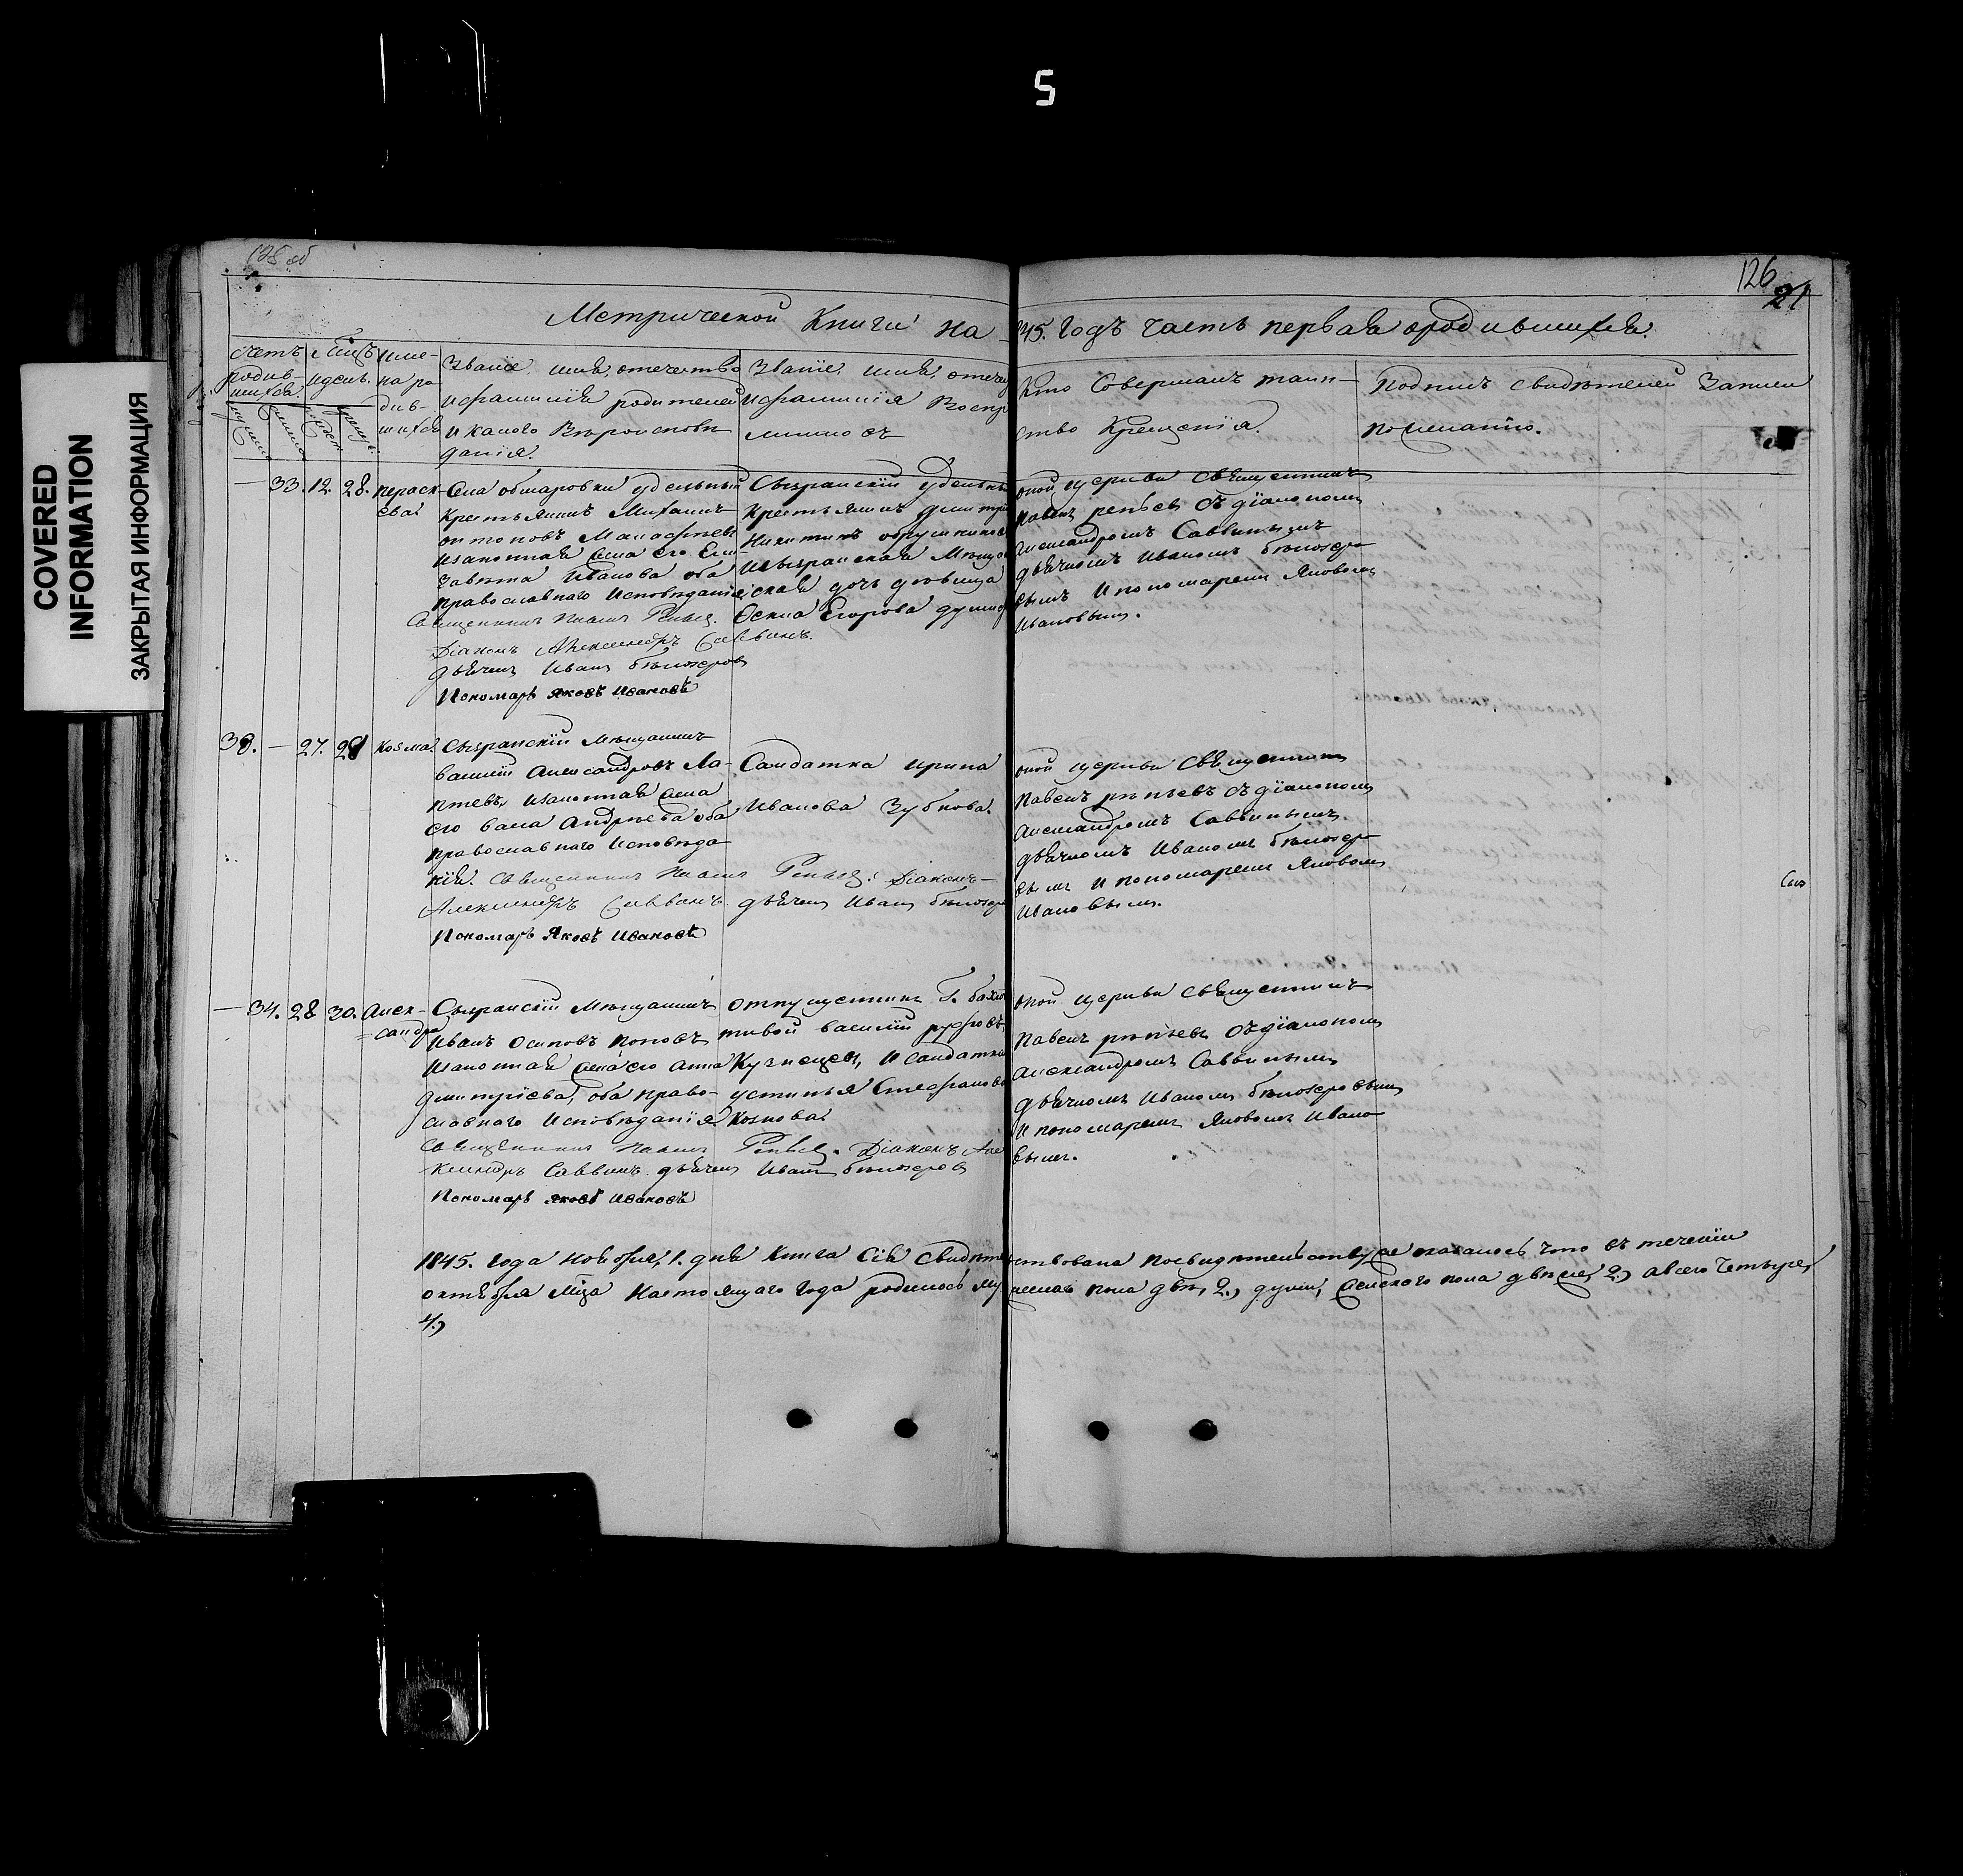 5
COVERED
INFORMATION
ЗАКРЫТАЯ ИНФОРМАЦИЯ
126
21
Метрической Книги на 845. Годъ часть первая о родившихся.
счетъ родив-
шихся.
Мцъ и день.
Име-
на ро
див-
шихся
Званіе, имя, отечество
и фамилія родителей
и какого Вѣроисповѣ
данія.
Званіе, имя, отече
и фамилія Воспр
Кто Совершалъ таин-
ство Крещенія.
Подпись свидѣтелей Записи
по желанію.
— 33. 12. 28. Параск-
ева
Села обшаровки удельный
Крестьянинъ Михаилъ
Изаконная жена его Ели-
завета Иванова оба
православнаго Исповѣданія
Священникъ Павелъ Репьев.
Діаконъ Александръ Саввинъ.
дьячекъ Иванъ бѣлозеров
Пономарь Яковъ Ивановъ
Сызранскій удельны
крестьянинъ Дмитри
Никитинъ
И сызранская Мѣща
ская дочь девица
Егорова
оной церкви Священникъ
Павелъ репьев съ діакономъ
Александромъ Саввинымъ
дьячкомъ Иваномъ бѣлозеро
вымъ И пономаремъ Яковомъ
Ивановымъ.
— 27. 28 Козма
Сызранскій Мѣщанинъ
василій Александровъ Ла-
птевъ, Изаконная жена
его васа Андреева оба
православнаго Исповѣда
нія. Священникъ Павелъ Репьев. Діаконъ—
Александръ Саввинъ. дьячекъ Иванъ бѣлозеро
Пономарь Яковъ Ивановъ
Салдатка ирина
Иванова Зубкова.
оной церкви Священникъ
Павелъ репьевъ съ діакономъ
Александромъ Саввинымъ.
дьячкомъ Иваномъ бѣлозеро
вымъ и пономаремъ Яковомъ
Ивановымъ.
— 34. 28 30. Алек-
сандра
Сызранскій Мѣщанинъ
Иванъ Осиповъ Поповъ
Изаконная жена его анна
дмитріева, оба право-
славнаго Исповѣданія
Священникъ Павелъ Репьев. Діаконъ Але
ксандръ Саввинъ. дьячекъ Иванъ бѣлозеров
Пономарь Яковъ Ивановъ
отпущенникъ Г. бахме
тивой василій
Кузнецовъ, И салдатка
устинья Стефанова
Козлова
оной церкви Священникъ
Павелъ репьевъ съ діакономъ
Александромъ Саввинымъ
дьячкомъ Иваномъ бѣлозеровымъ
И пономаремъ Яковомъ Ивано
вымъ.
1845. года Ноября, 1. дня Книга Сія Свидѣтельствована По свидѣтельству же оказалось что въ теченіи
октября Мца Настоящаго Года родилось Мужеска пола двѣ, 2., души, Женского пола двѣже, 2., а всего Четыре,
4.,